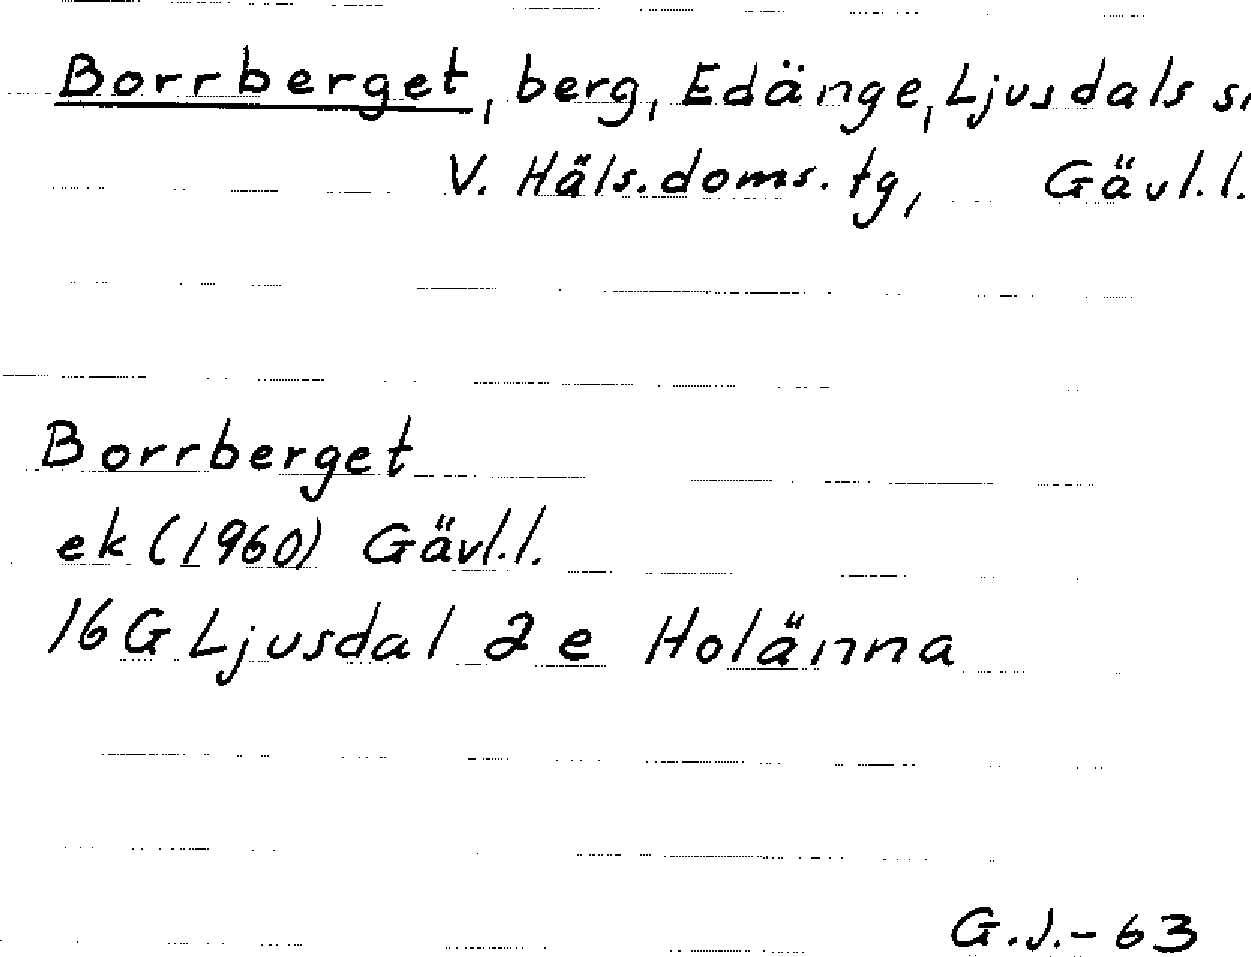 Borrberget, berg, Edänge, Ljusdals s,
V. Häls. doms. tg, Gävl. l.
Borrberget
ek (1960) Gävl. l.
16 G Ljusdal 2 e Holänna
G.J.-63